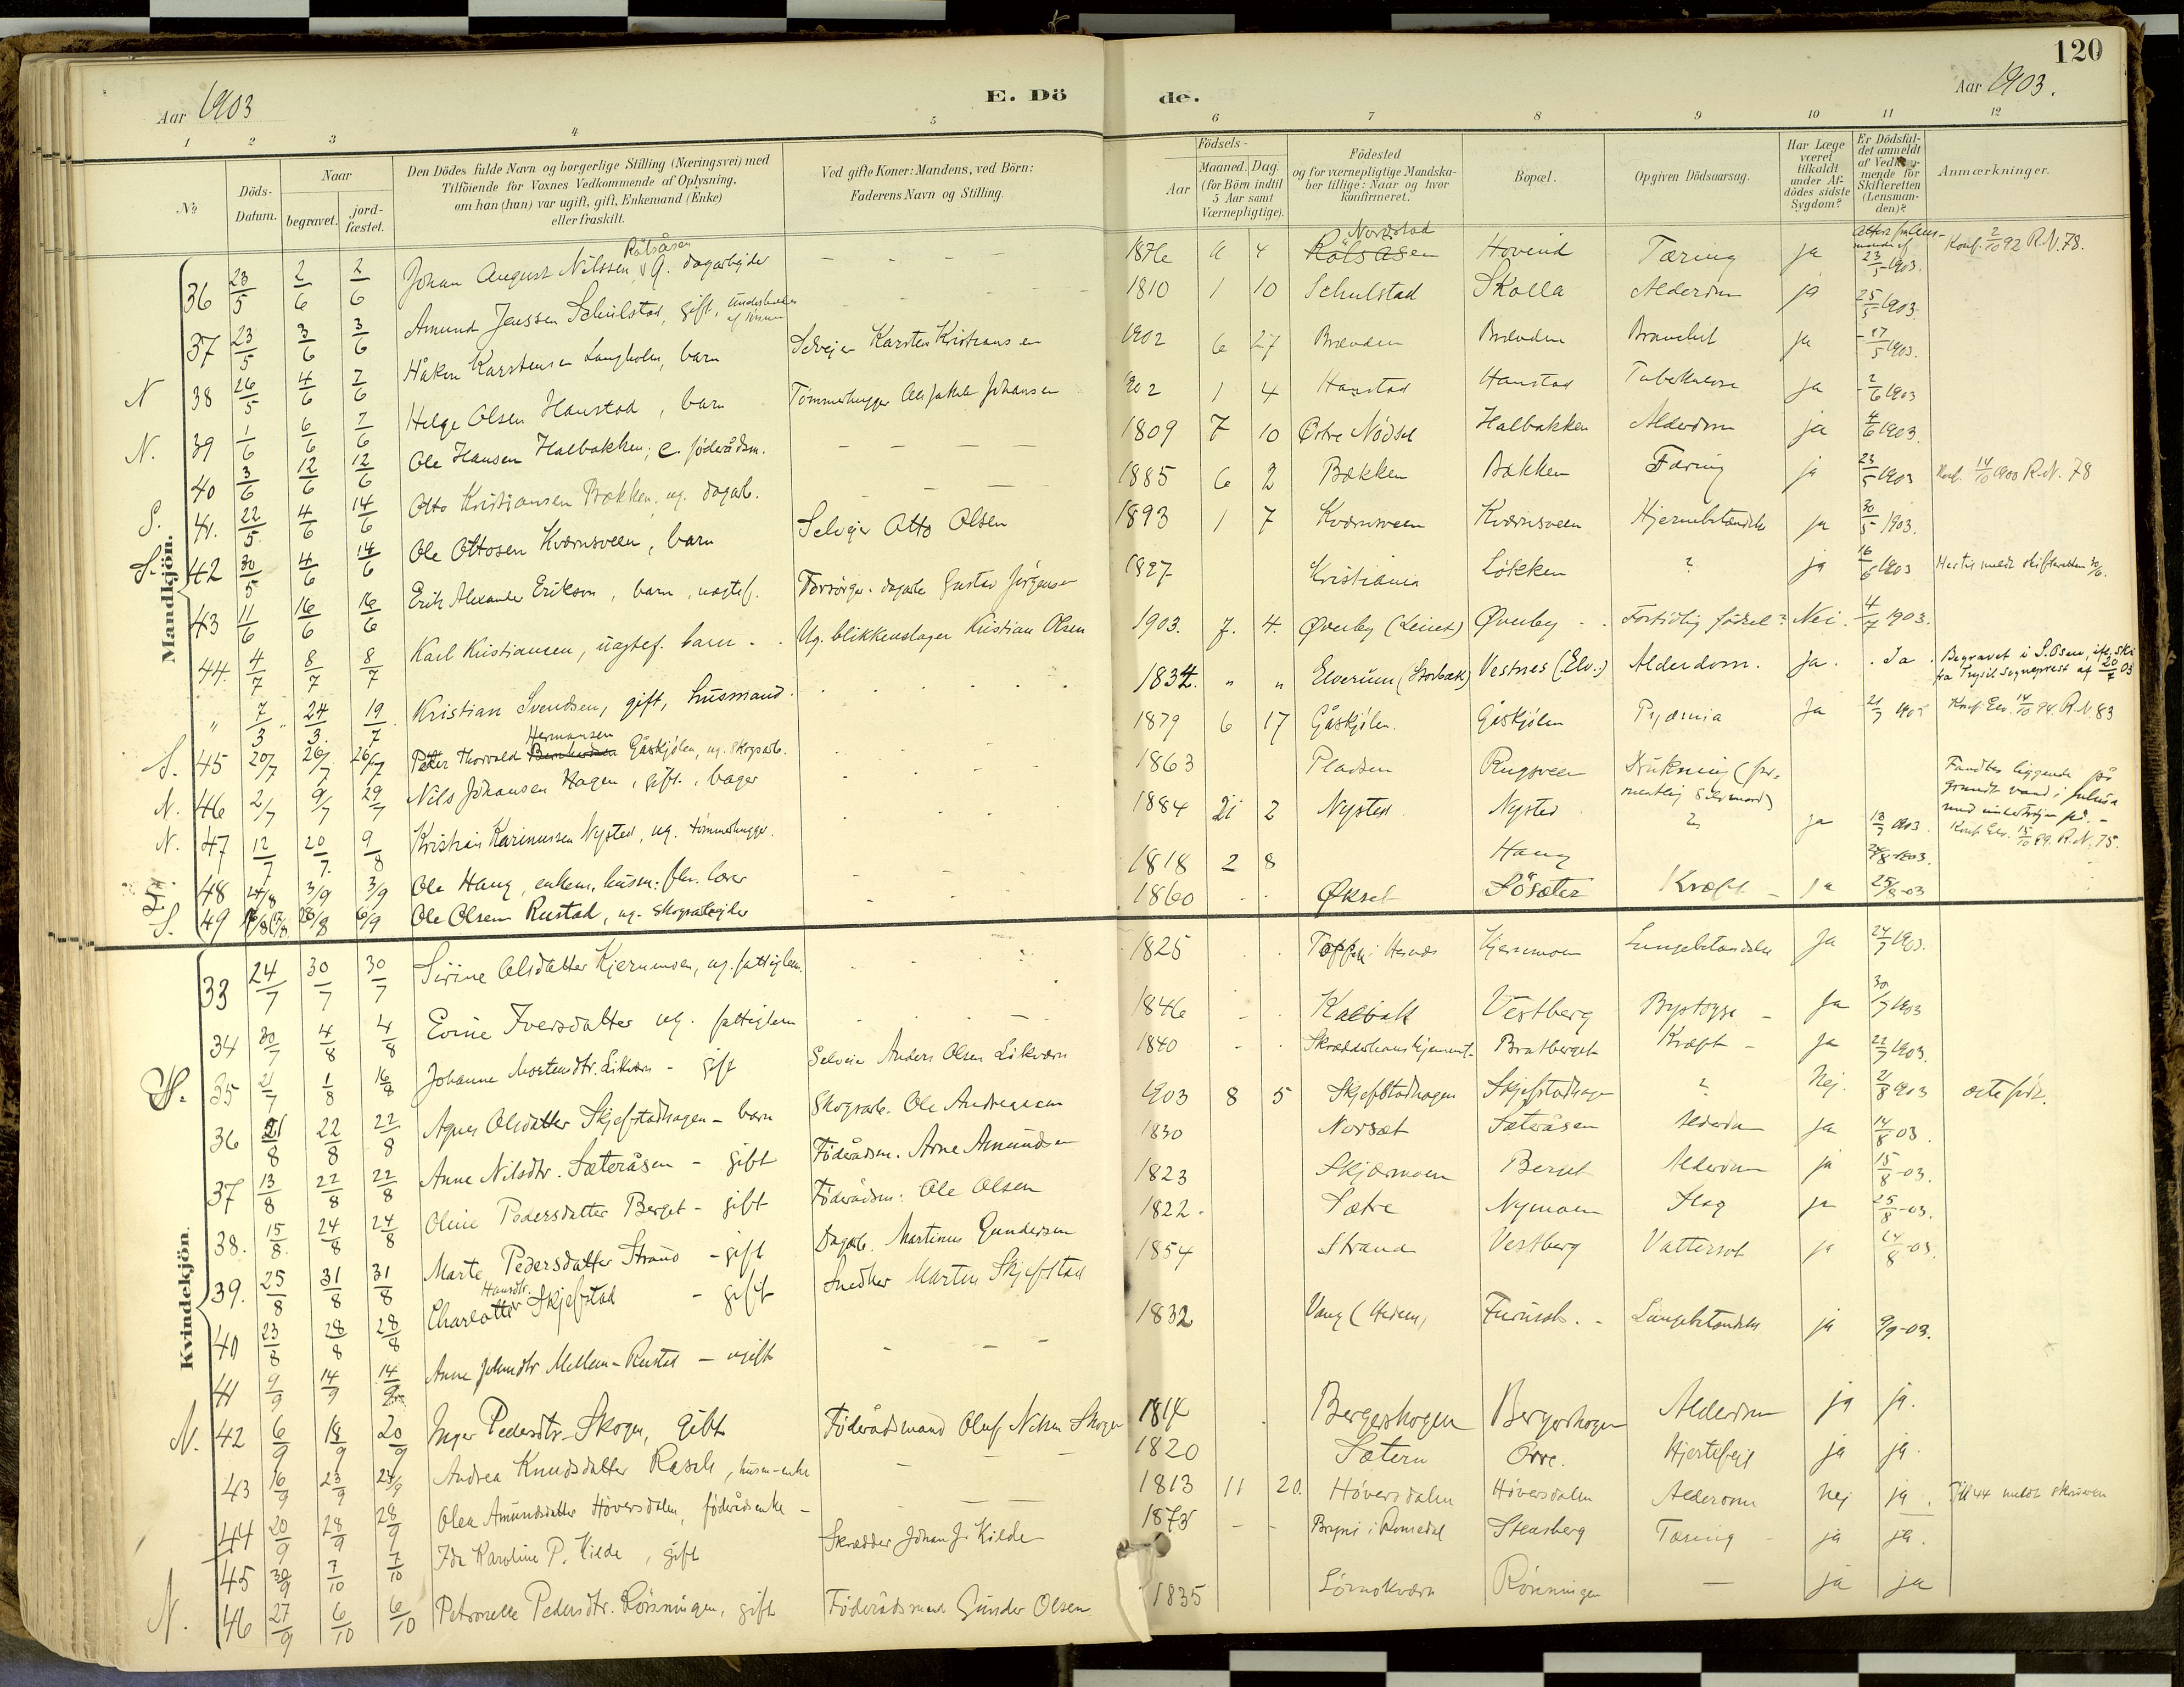 120
Aar 1903
E. Dö
de.
Aar 1903.
1 2 3 4 5 6 7 8 9 10 11 12
No
Döds-Datum.
Naar begravet. jordfæstet.
Den Dödes fulde Navn og borgerlige Stilling (Næringsvei) med
Tilföiende for Voxnes Vedkommende af Oplysning,
om han (hun) var ugift, gift, Enkemand (Enke)
eller fraskilt.
Ved gifte Koner: Mandens, ved Börn:
Faderens Navn og Stilling.
Födsels-
Aar Maaned. Dag.
(for Börn indtil
5 Aar samt
Værnepligtige).
Födested
og for værnepligtige Mandska-
ber tillige: Naar og hvor
konfirmeret.
Bopæl.
Opgiven Dödsaarsag.
Har Læge
været
tilkaldt
under Af-
dödes sidste
Sygdom?
Er Dödsfal-
det anmeldt
af Vedkom-
mende for
Skifteretten
(Lensman-
den)?
Anmærkninger.
Mandkjön.
36 23/5 2/6 2/6 Johan August Nilssen Rölsåsen, dagarbejder 1876 4 Nordstad Rölsåsen Hovind Tæring ja 23/5 1903. Konf. 2/10 92 R.N. 78.
37 23/5 3/6 3/6 Amund Jenssen Schulstad, gift, 1810 1 10 Schulstad Skolla Alderdom ja 25/5 1903.
N 38 26/5 4/6 7/6 Håkon Karstensen Langholm, barn Selvejer Karsten Kristiansen 1902 6 27 Brænden Brænden ja 1903.
N. 39 1/6 6/6 7/6 Helge Olsen Hanstad, barn Tömmerhugger Johansen 1902 1 4 Hanstad Hanstad Tuberkulose ja 2/6 1903
40 3/6 12/6 12/6 Ole Hansen Halbakken; e. föderådsm. 1809 7 10 Østre Nödset Halbakken Alderdom ja 4/6 1903.
S. 41. 22/5 4/6 14/6 Otto Kristiansen Bækken, ug. dagarb. 1885 6 2 Bækken Bakken Tæring ja 23/5 1903 Konf. 14/10 1900 R.N. 78
S. 42 30/5 4/6 14/6 Ole Ottosen Kværnsveen, barn Selvejer Otto Olsen 1893 1 7 Kværnsveen Kværnsveen Hjernebetændelse ja 30/5 1903.
43 11/6 16/6 16/6 Erik Alexander Erikson, barn, uægtef. Forsörger dagarb. Gustav Jörgensen 1897 Kristiania Lökken ? ja 16/6 1903
44. 4/7 8/7 8/7 Karl Kristiansen, uægtef. barn Ug. blikkenslager Kristian Olsen 1903. 7. 4. Øverby (Leiret) Øverby Fortidlig födsel? Nei. 4/7 1903.
" 7/3 24/3. 19/7 Kristian Svendsen, gift, husmand. 1834. " " Elverum (Storbæk) Vestnes (Elv.) Alderdom. Ja. Ja. Begravet i S. Osen, ifl. ski
fra Trysil Sogneprest af 20/7 03
S. 45 20/7 26/7 26/7 Peter Thorvald Hermansen Gåskjölen, ug. skogsarb. 1879 6 17 Gåskjölen Gåskjölen Pyæmia Ja 21/7 1903 Konf. Elv. 14/10 94. R.N. 83
N. 46 2/7 9/7 29/7 Nils Johansen Hagen, gift, bager 1863 Pladsen Rugsveen Drukning (for-
mentlig selvmord) Fandtes liggende på
grundt vand i
N. 47 12/7 20/7. 9/8 Kristian Karinussen Nysted, ug. tömmerhugger. 1884 2 Nysted Nysted ? ja 13/7 1903. Konf. Elv. 15/10 99. R.N. 75.
48 24/8 3/9 3/9 Ole Haug, enkem. husm. 1818 2 8 Haug 1903.
S. 49 28/8 6/9 Ole Olsen Rustad, ug. skogsarbejder 1860 Økset Sösæter Kræft ja 25/8-03
Kvindekjön.
33 24/7 30/7 30/7 Sirine Olsdatter Kjernmoen, ug. fattiglem. 1825 Kjernmoen Lungebetændelse Ja 24/7 1903.
34 30/7 4/8 4/8 Eoine Iversdatter ug. fattiglem 1846 Kalbak Vestberg Brystsyge Ja 30/7 1903
35 21/7 1/8 16/8 Johanne Mortensdtr. Likværn - gift Selveier Anders Olsen Likværn 1840 Bratberget Kræft ja 22/7 1903.
36 21/8 22/8 22/8 Agnes Olsdatter Skjefstadhagen - barn Skogsarb. Ole Andreassen 1903 8 5 Skjefstadhagen Skjefstadhagen ? Nej. 21/8 1903
37 13/8 22/8 22/8 Anne Nilsdtr. Sæteråsen - gift Föderådsm. Arne Amundsen 1830 Norsæt Sæteråsen Alderdom ja 14/8 03.
38. 15/8. 24/8 24/8 Oline Pedersdatter Berget - gift Föderådsm. Ole Olsen 1823 Skjærmoen Berget Alderdom ja 15/8-03.
39. 25/8 31/8 31/8 Marte Pedersdatter Strand - gift Dagarb. Martinus Gundersen 1822. Sætre Nymoen Slag ja 25/8-03.
40 23/8 28/8 28/8 Charlotte Hansdtr. Skjefstad - gift Snedker Martin Skjefstad 1854 Strand Vestberg Vattersot ja 24/8-03.
41 9/9 14/9 14/9 Anne Johnsdtr Mellem-Rustad - ugift 1832 Vang (Hedem.) Furusb. Lungebetændelse ja 9/9-03.
N. 42 6/9 18/9 20/9 Inger Pedersdtr. Skogen, gift Föderådsmand Oluf Nilsen Skogen 1814 Bergerskogen Bergerskogen Alderdom ja ja.
43 16/9 23/9 24/9 Andrea Knudsdatter Rasch, husm-enke 1820 Sætern Orre. Hjertefejl ja ja.
44 20/9 28/9 28/9 Olea Amundsdatter Höversdalen, föderådsenke 1813 11 20. Höversdalen Höversdalen Alderdom Nej ja. Till 44 meldt
45 30/9 7/10 7/10 Ida Karoline P. Kilde, gift Skrædder Johan J. Kilde 1873 Bryni i Romedal Stensberg Tæring ja ja.
N. 46 27/9 6/10 6/10 Petronelle Pedersdtr. Rönningen, gift Föderådsmand Gunder Olsen 1835 Rönningen ja ja